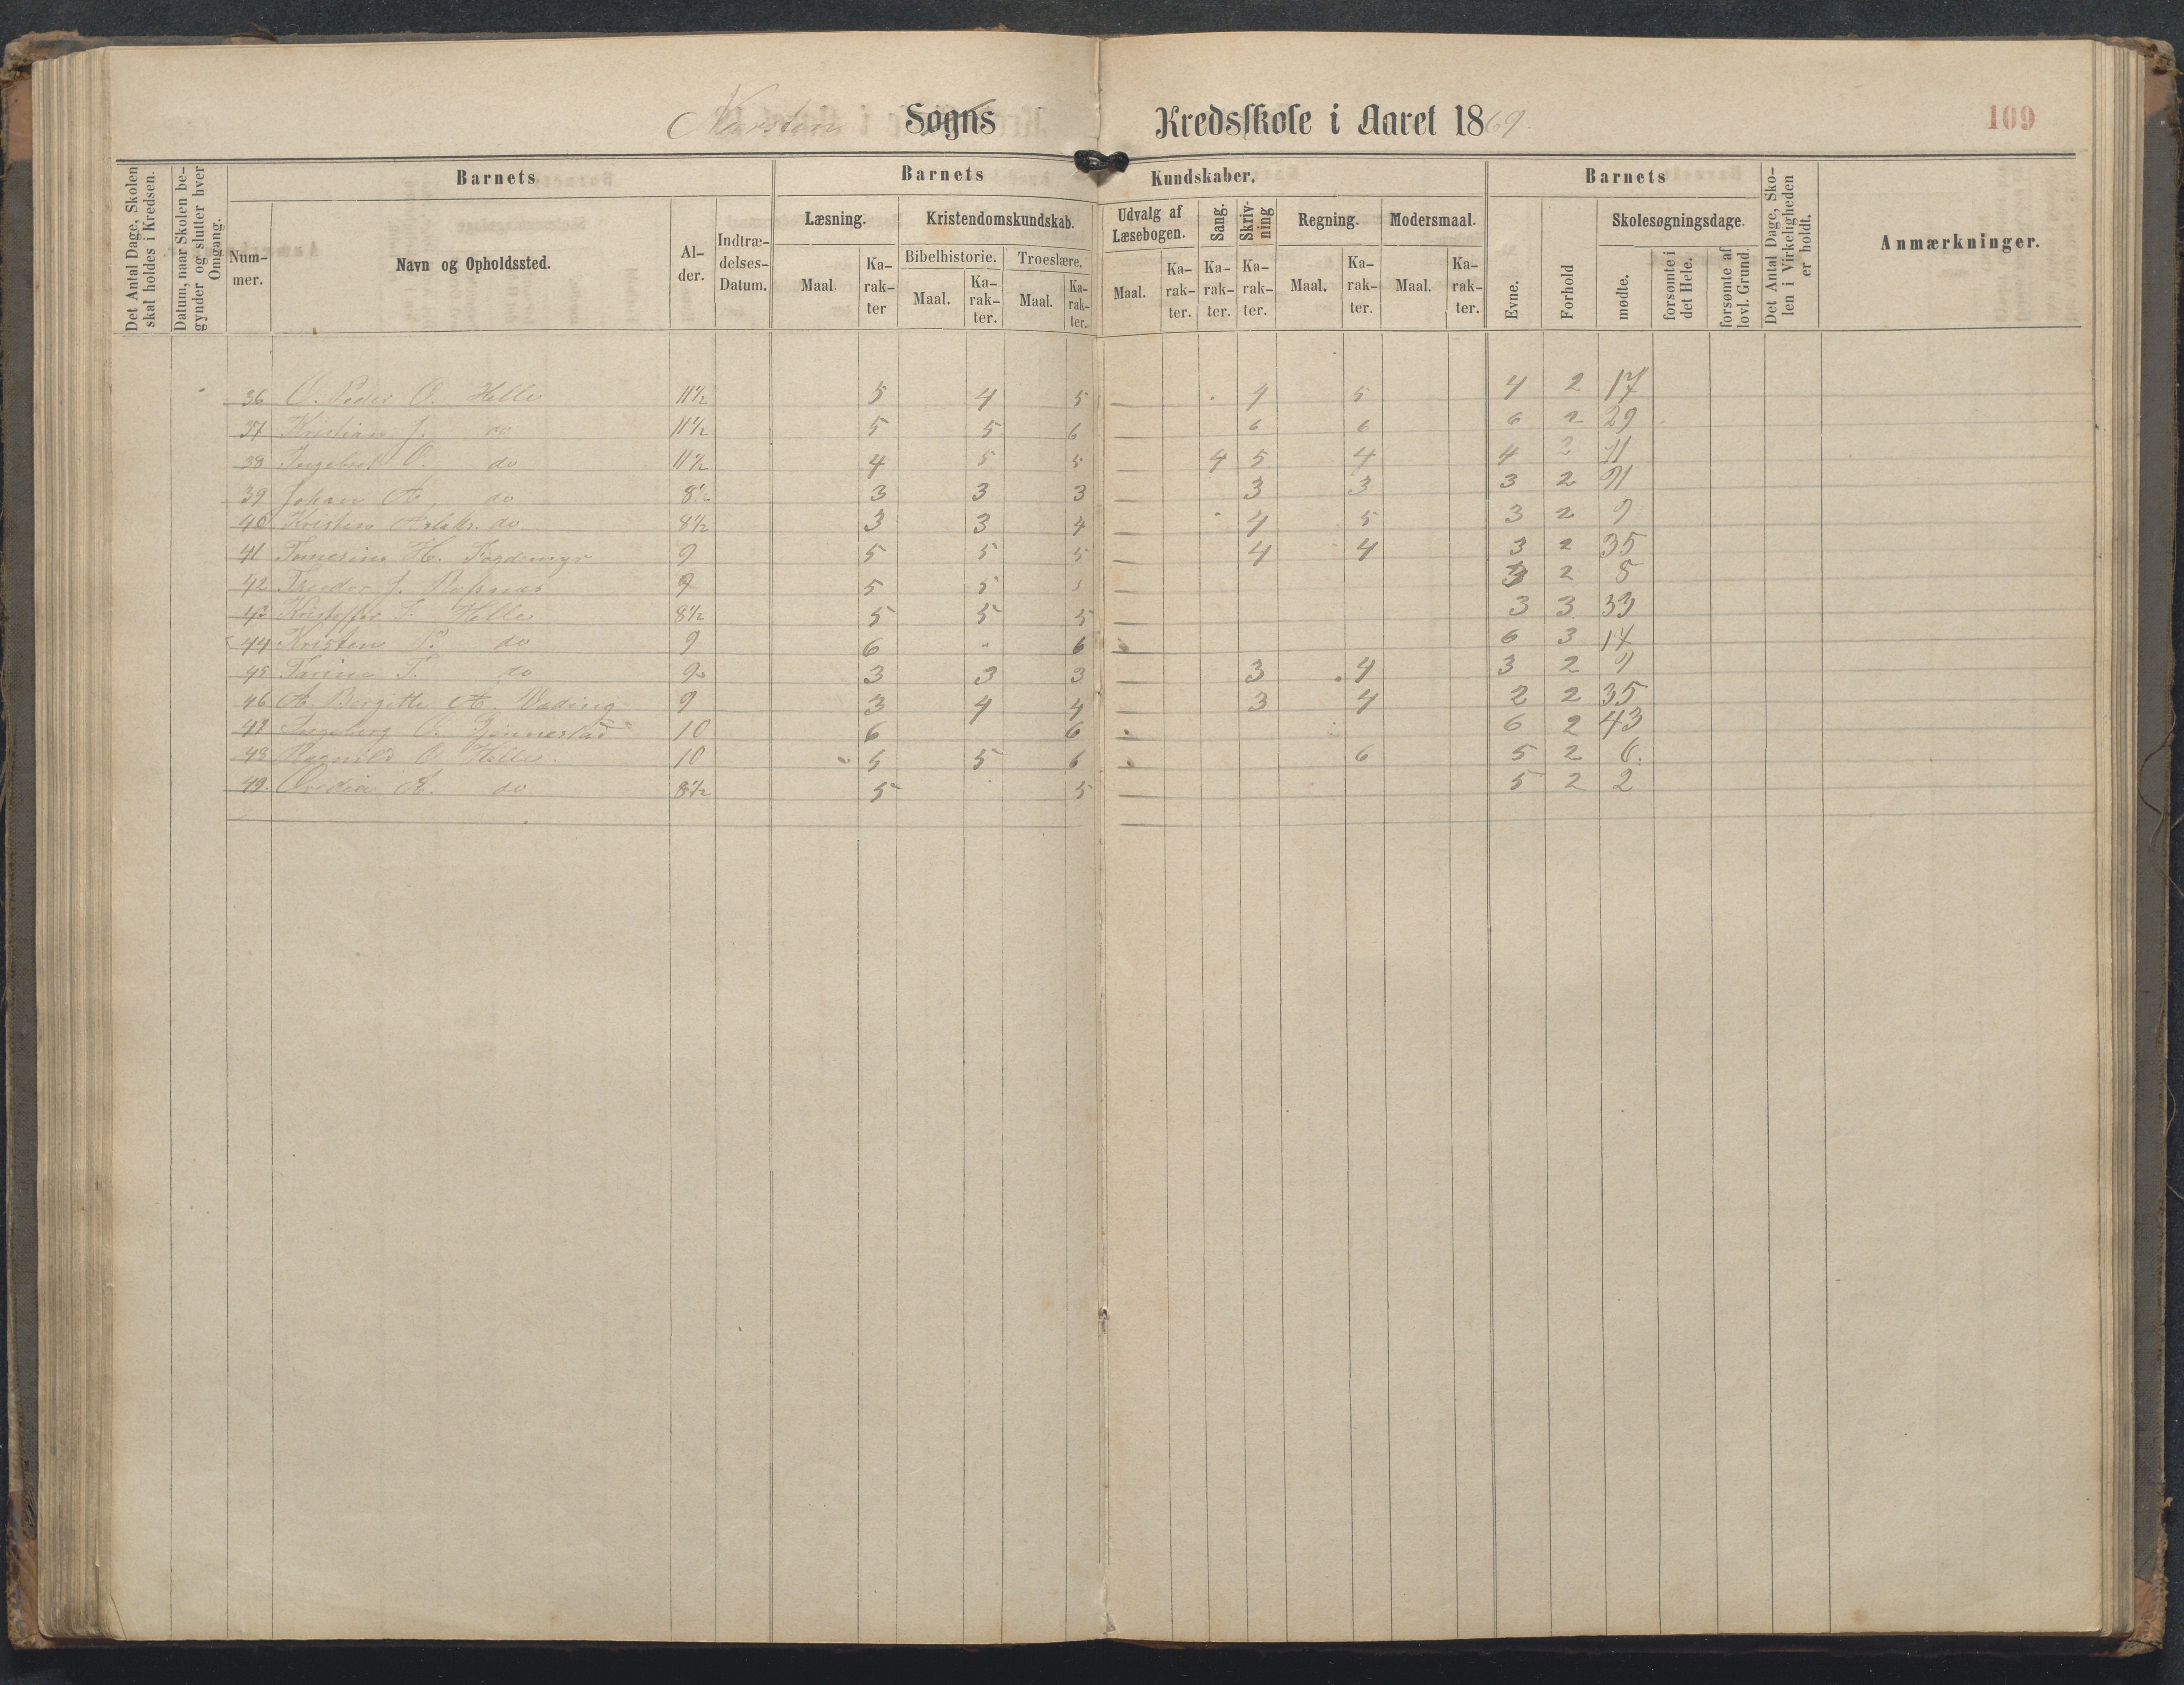 Sogns Kredsskole i Aaret 1869.
109
Det Antal Dage, Skolen skal holdes i Kredsen.
Datum, naar Skolen begynder og slutter hver Omgang.
Barnets
Barnets Kundskaber.
Barnets
Det Antal Dage, Skolen i Virkeligheden er holdt.
Anmærkninger.
Nummer.
Navn og Opholdssted.
Alder.
Indtrædelses-Datum.
Læsning.
Kristendomskundskab.
Udvalg af Læsebogen.
Sang.
Skrivning
Regning.
Modersmaal.
Evne.
Forhold
Skolesøgningsdage.
Bibelhistorie.
Troeslære.
Maal. Karakter
Maal. Karakter.
Maal. Karakter.
Maal. Karakter.
Karakter.
Karakter.
Maal. Karakter.
Maal. Karakter.
mødte.
forsømte i det Hele.
forsømte af lovl. Grund.
36 O. Peder O. Helle 11½ 5 4 5 4 5 4 2 17
37 Kristian J. do 11½ 5 5 6 6 6 6 2 29
38 Ingebret O. do 11½ 4 5 5 4 5 4 4 2
39 Johan A. do 8½ 3 3 3 3 3 3 2
40 Kristen Aslaks. do 8½ 3 3 4 4 5 3 2 9
41 H. 9 5 5 5 4 4 3 2 35
42 Theodor J. 9 5 5 2 8
43 Kristoffer Helle 8½ 5 5 5 3 3 33
44 Kristen do 9 6 6 6 3
45 T. do 9 3 3 3 3 4 3 2 9
46 A. Bergitte A. 9 3 4 4 3 4 2 2 35
47 Ingeborg O. 10 6 6 6 2 43
48 Ragnild O. Helle. 10 5 5 6 6 5 2 6.
49. A. do 8½ 5 5 5 2 2